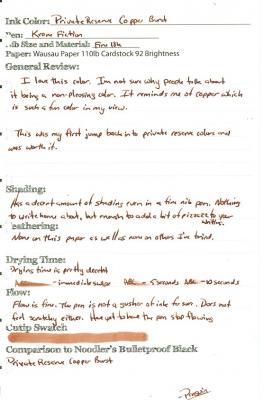 Ink Color: Private Reserve Copper Burst
Pen: Krone Fiction
Nib Size and Material: Fine 18k
Paper: Wausau Paper 110lb Cardstock 92 Brightness
General Review:
I love this color. I'm not sure why people talk about
it being a non-pleasing color. It reminds me of copper which
is such a fun color in my view.
This was my first jump back into private reserve colors and
was worth it.
Shading:
Has a decent amount of shading even in a fine nib pen. Nothing
to write home about, but enough to add a bit of pizzazz to your
writing.
Feathering:
None on this paper as well as none on others I've tried.
Drying Time:
Drying time is pretty decent
- immediate swipe - 5 seconds - 10 seconds
Flow:
Flow is fine. The pen is not a gusher of ink for sure. Does not
feel scratchy either. Have yet to have the pen stop flowing
Qutip Swatch
Comparison to Noodler's Bulletproof Black
Private Reserve Copper Burst